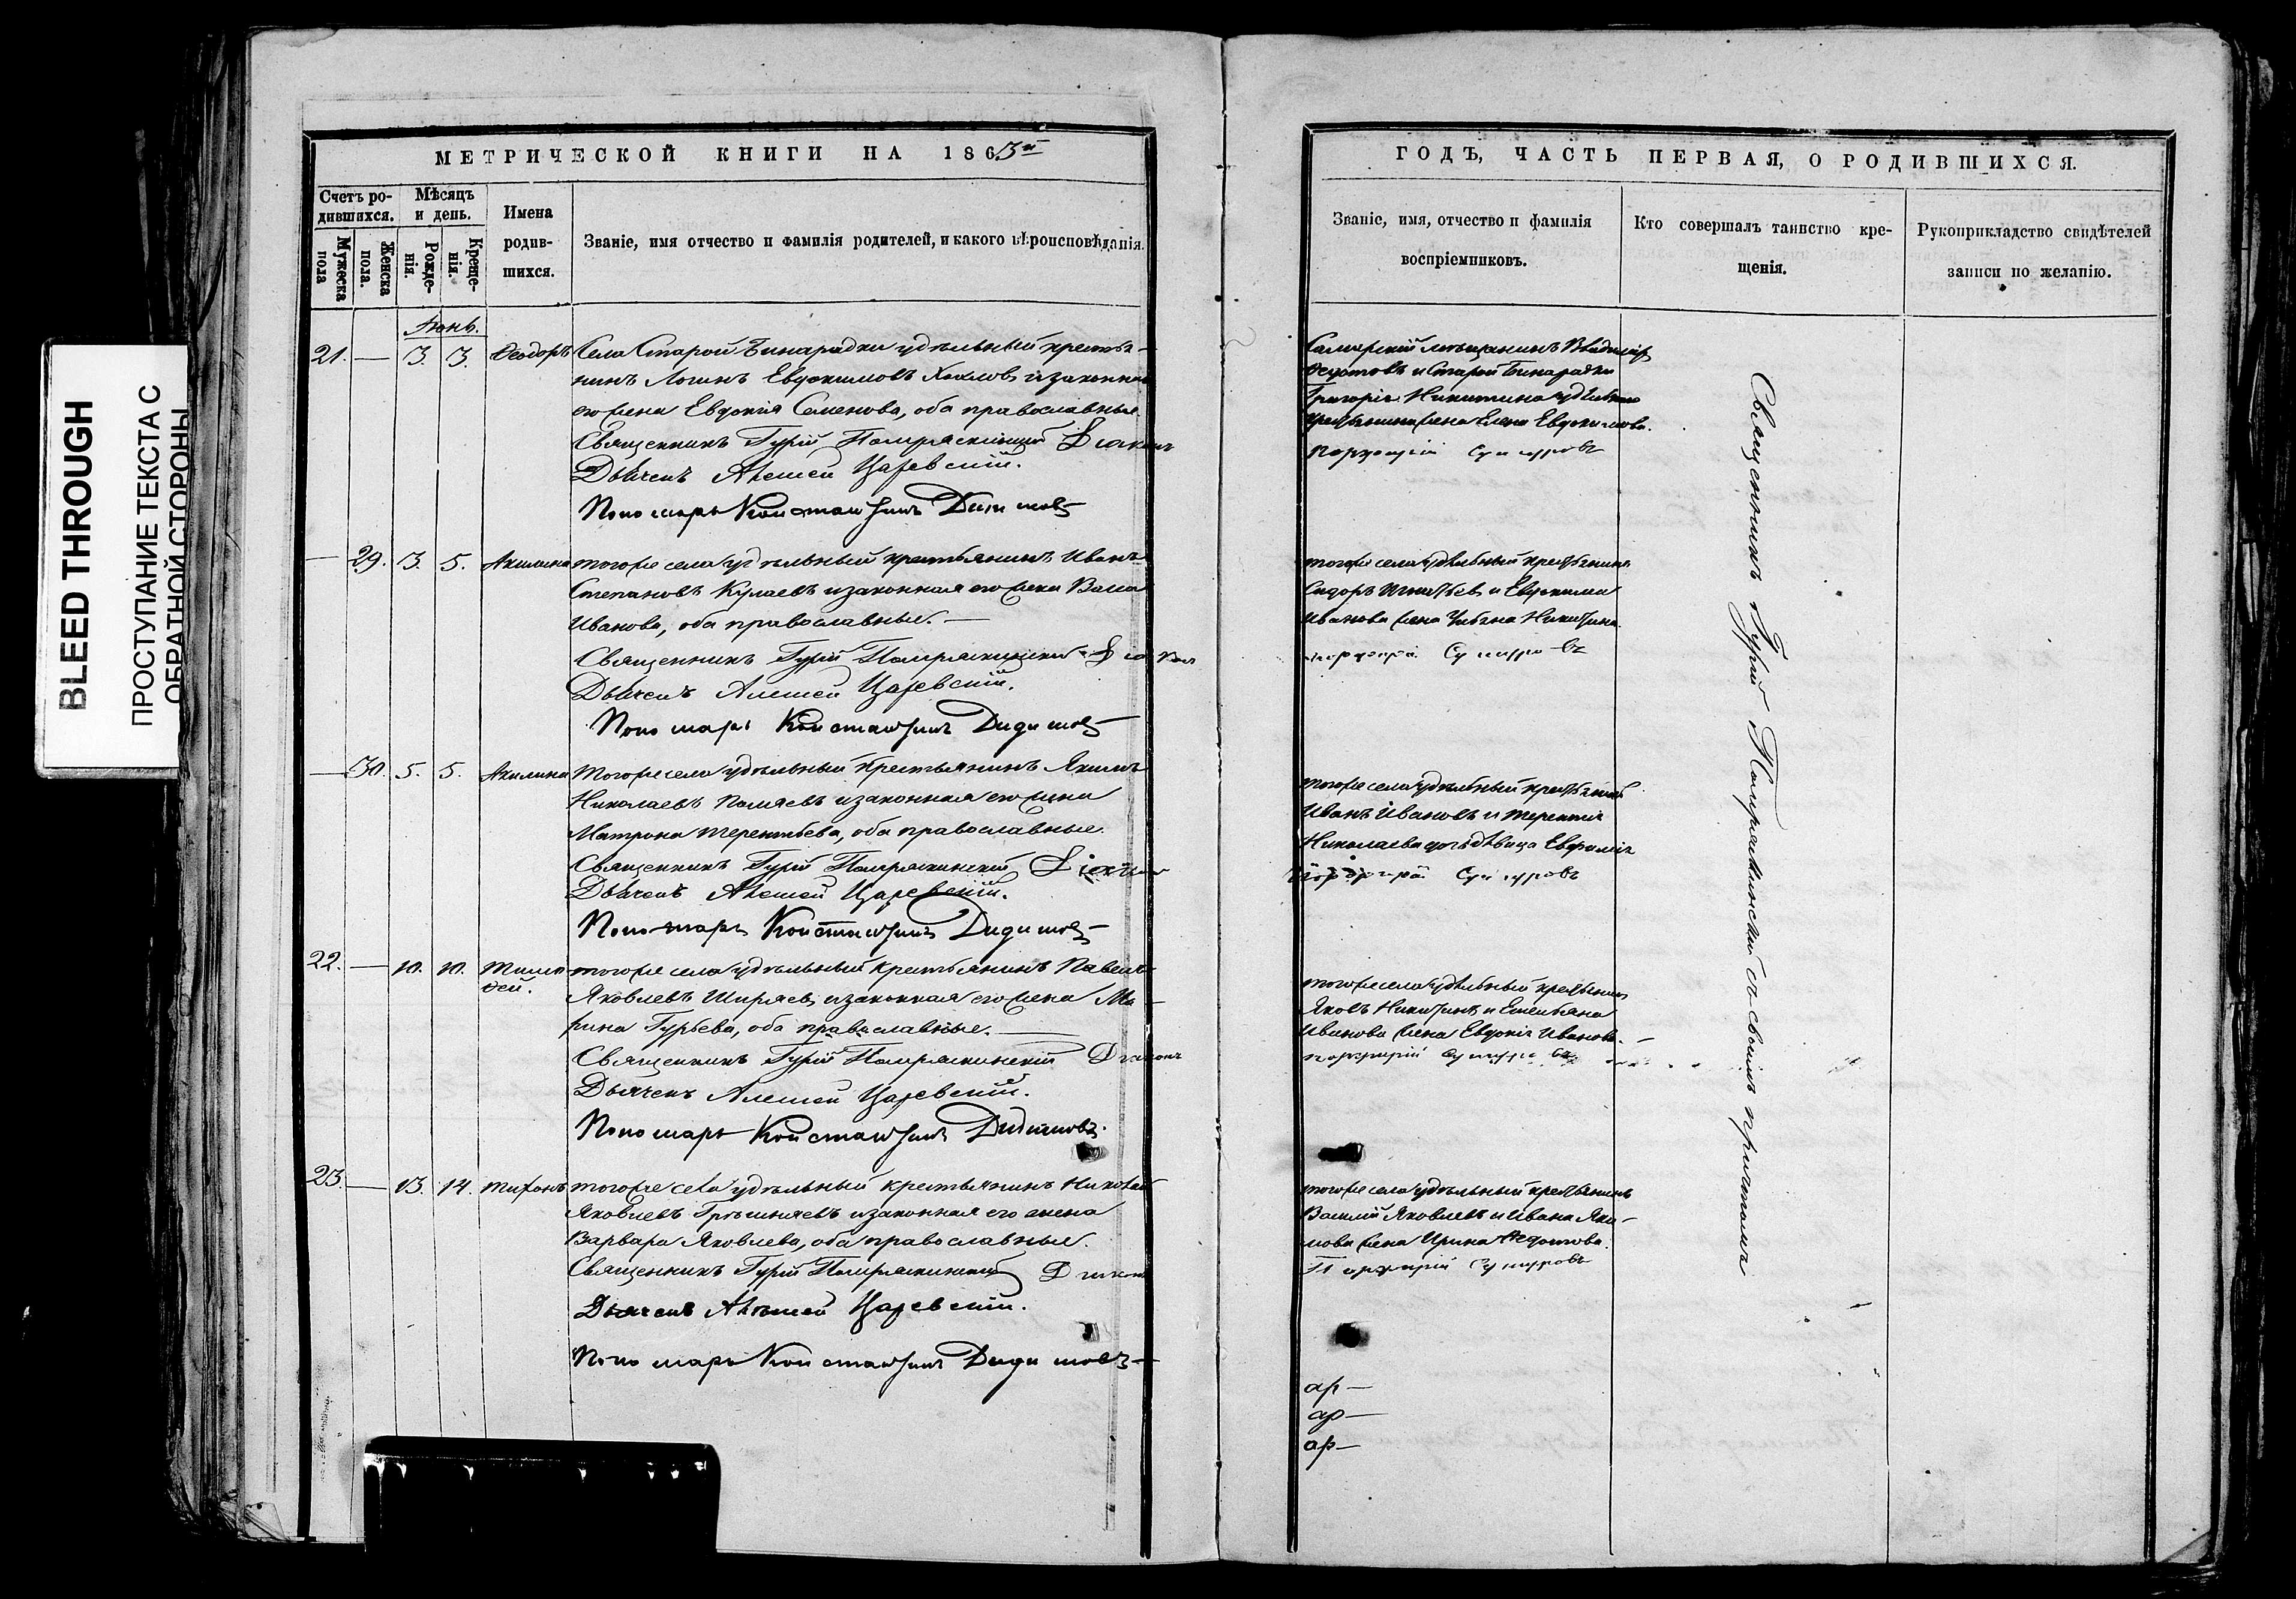 BLEED THROUGH
ПРОСТУПАНИЕ ТЕКСТА С
ОБРАТНОЙ СТОРОНЫ
МЕТРИЧЕСКОЙ КНИГИ НА 1863й
Счетъ ро-
дившихся.
Мужеска
пола
Женска
пола.
Мѣсяцъ
и день.
Рожде-
нія.
Креще-
нія.
Имена
родив-
шихся.
Званіе, имя отчество и фамилія родителей, и какого вѣроисповѣданія.
Іюнь.
21. — 3. 3. Ѳеодоръ Села Старой Бинарадки удѣльный крестья-
нинъ Логинъ Евдокимовъ и законная
его жена Евдокія Семенова, оба православные.
Священникъ Гурій Діаконъ
Дьячекъ Алексѣй Царевскій.
Пономарь Константинъ Дидимовъ
— 29. 3. 5. Акилина тогоже села удѣльный крестьянинъ Иванъ
Степановъ Кулаевъ и законная его жена
Иванова, оба православные. —
Священникъ Гурій
Дьячекъ Алексѣй Царевскій.
Пономарь Константинъ Дидимовъ
— 30. 5. 5. Акилина тогоже села удѣльный крестьянинъ Якимъ
Николаевъ и законная его жена
Матрона Терентьева, оба православные.
Священникъ Гурій Діаконъ
Дьячекъ Алексѣй Царевскій.
Пономарь Константинъ Дидимовъ
22. — 10. 10. Тимо-
ѳей.
тогоже села удѣльный крестьянинъ Павелъ
Яковлевъ Ширяевъ и законная его жена Ма-
рина Гурьева, оба православные. —
Священникъ Гурій Діаконъ
Дьячекъ Алексѣй Царевскій.
Пономарь Константинъ Дидимовъ.
23. — 13. 14. Тихонъ тогоже села удѣльный крестьянинъ Николай
Яковлевъ и законная его жена
Варвара Яковлева, оба православные.
Священникъ Гурій Діаконъ
Дьячекъ Алексѣй Царевскій.
Пономарь Константинъ Дидимовъ
ГОДЪ, ЧАСТЬ ПЕРВАЯ, О РОДИВШИХСЯ.
Званіе, имя, отчество и фамилія
воспріемниковъ.
Кто совершалъ таинство кре-
щенія.
Рукоприкладство свидѣтелей
записи по желанію.
Самарскій мѣщанинъ Владиміръ
и Старой Бинарадки
Григорія Никитина удѣльнаго
крестьянина жена Елена Евдокимова.
Порфирій
тогоже села удѣльный крестьянинъ
Сидоръ Игнатьевъ и Евдокима
Иванова жена Никитина.
Порфирій
тогоже села удѣльный крестьянинъ
Иванъ Ивановъ и Терентія
Николаева дочь дѣвица Евфимія
Порфирій
тогоже села удѣльный крестьянинъ
Яковъ Никитинъ и Емельяна
Иванова жена Евдокія Иванова.
Порфирій
тогоже села удѣльный крестьянинъ
Василій Яковлевъ и Ивана Яки-
мова жена Ирина Ѳедотова.
Порфирій
Священникъ Гурій съ своимъ причтомъ
ар—
ар—
ар—